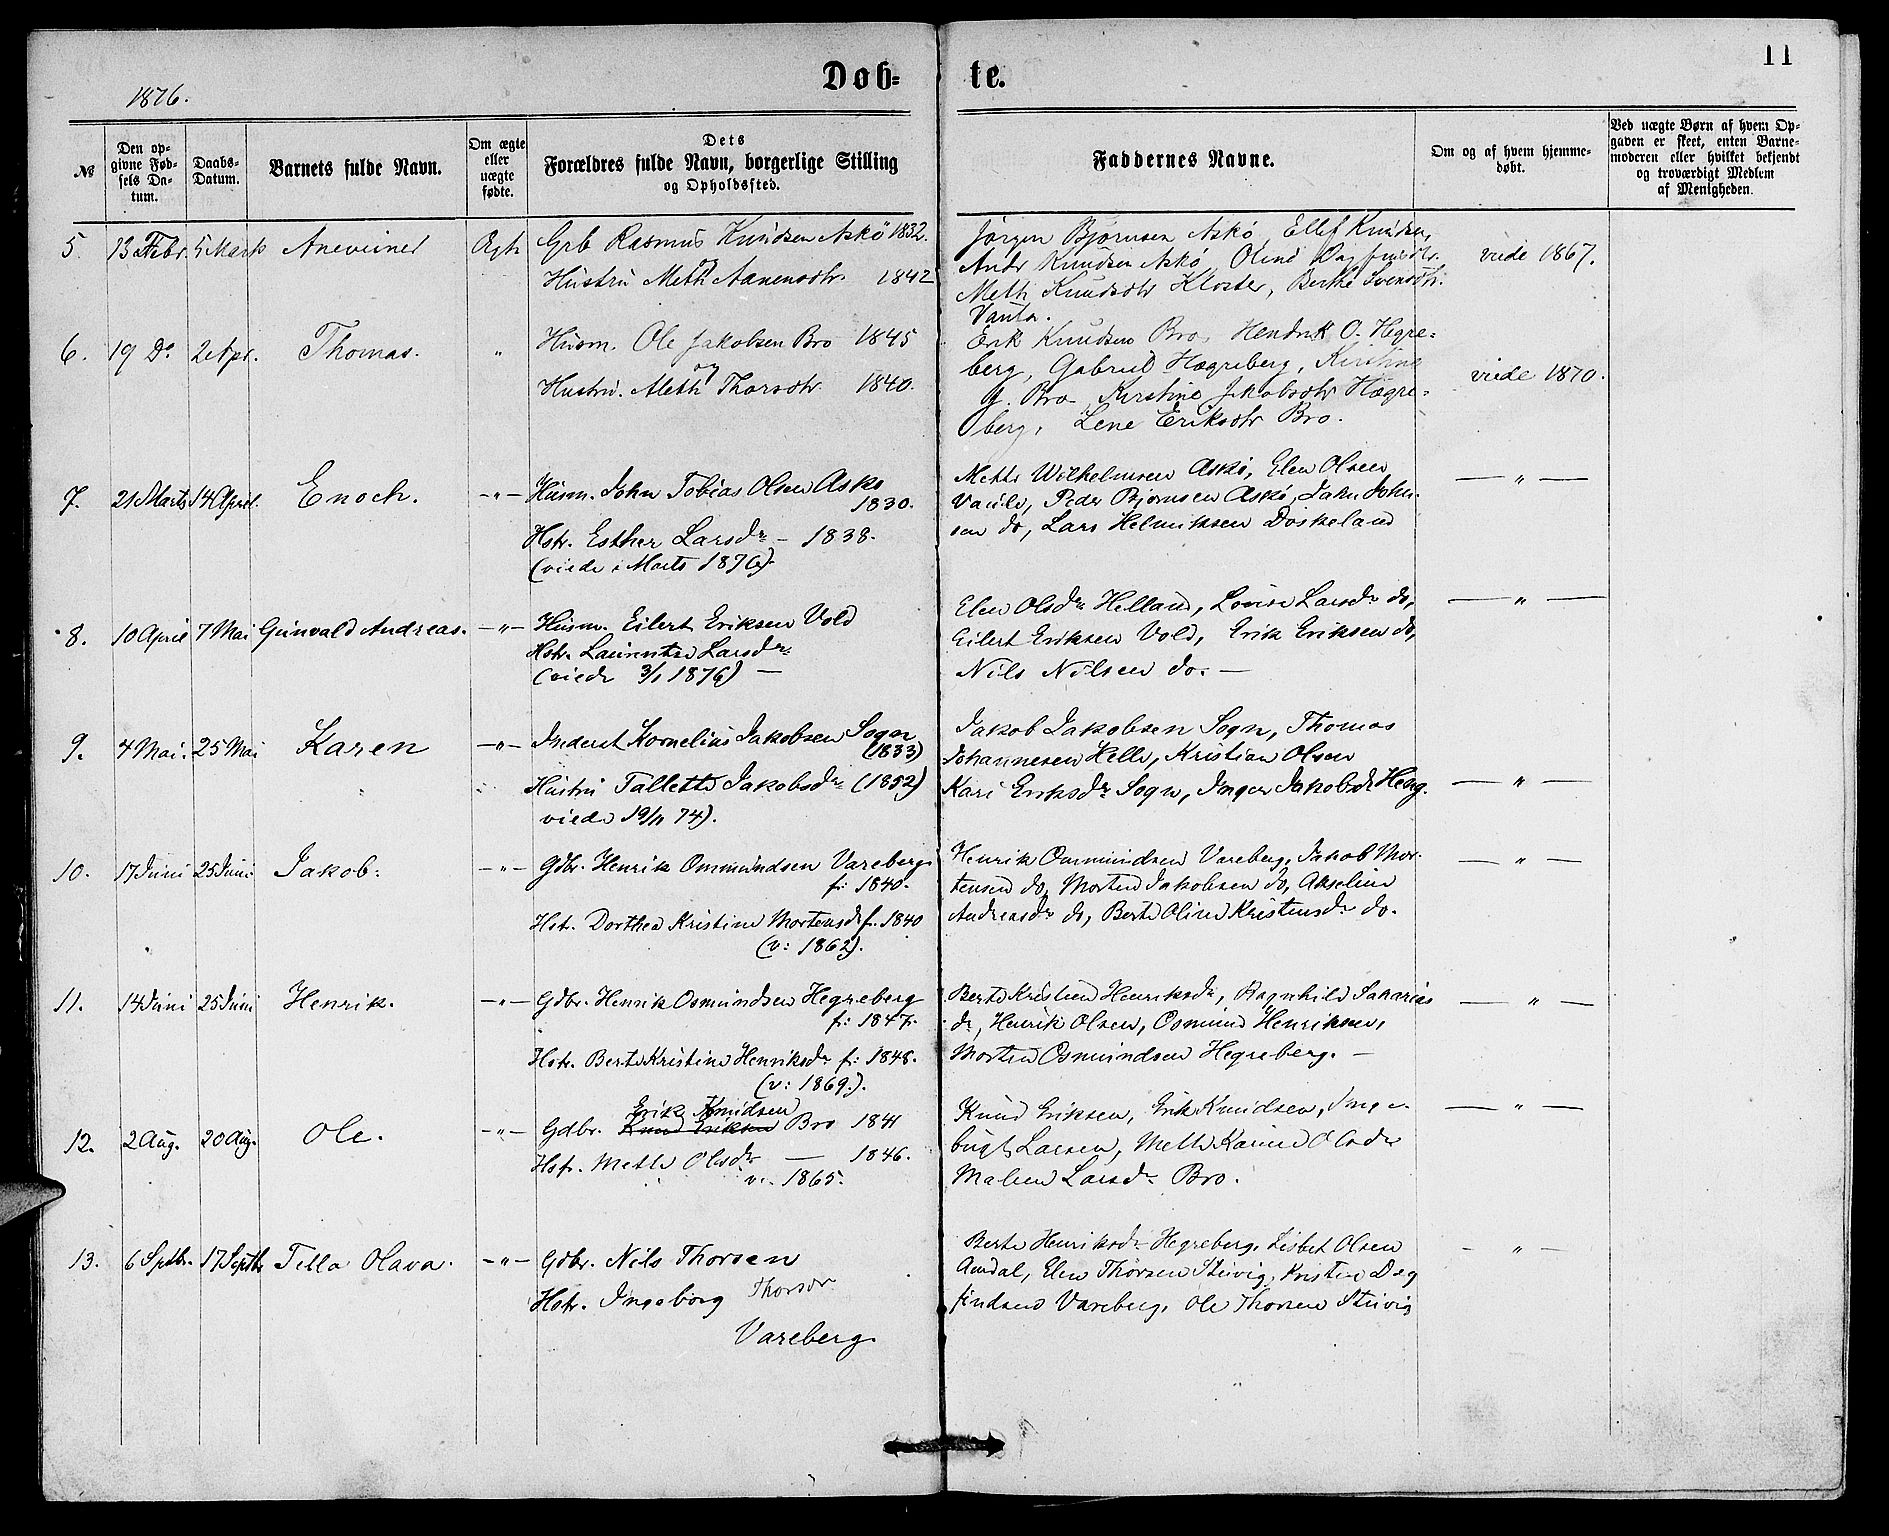 11
1876.
Døb-
te.
№
Den op-
givne Fød-
sels Da-
tum.
Daabs-
Datum.
Barnets fulde Navn.
Om ægte
eller
uægte
fødte.
Dets
Forældres fulde Navn, borgerlige Stilling
og Opholdssted.
Faddernes Navne.
Om og af hvem hjemme-
døbt.
Ved uægte Børn af hvem Op-
gaven er skeet, enten Barne-
moderen eller hvilket bekjendt
og troværdigt Medlem
af Menigheden.
5. 13 Febr. 5 Marts
Grb Rasmus Knudsen Askö 1832.
og
Hustru Meth Aanensdtr. 1842
Jørgen Bjørnsen Askö, Ellef Knudsen,
Andr Knudsen Askö, Oline Dagfinsdtr.
Meth Knudsdtr Kloster, Berthe Svensdtr.
viede 1867.
6. 19 Do 2 Apr. Thomas. "
Husm. Ole Jakobsen Bro 1845
og
Hustru. Aleth Thorsdtr 1840.
Erik Knudsen Bro, Hendrik O. Hegre-
berg, Gabriel Hægreberg, Kirstine
G. Bro, Kirstine Jakobsdtr Hægre-
berg, Lene Eriksdtr Bro.
viede 1870.
7. 21 Marts 14 April. Enoch. -"-
Husm. John Tobias Olsen Askö
1830.
Hstr. Esther Larsdr - 1838.
(viede i Marts 1876).
Mette Wilhelmsen Askö, Elen Olsen
Peder Bjørnsen Askö, John John-
sen do, Lars Helmiksen Døskeland
— " —
8. 10 April 7 Mai Gunvald Andreas. -"-
Husm. Eilert Eriksen Vold
Hstr. Larsdr
(viede 3/1 1876) —
Elen Olsdr Helland, Lovise Larsdr do,
Eilert Eriksen Vold, Erik Eriksen do,
Nils Nilsen do. —
— " —
9. 4 Mai. 25 Mai Karen -"-
Inderst Kornelius Jakobsen Sogn
(1833)
Hustru Tallette Jakobsdr (1852)
viede 19/11 74).
Jakob Jakobsen Sogn, Thomas
Johannesen Helle, Kristian Olsen
Kari Eriksdr Sogn, Inger Jakobsdr
— " —
10. 17 Juni 25 Juni Jakob. -"-
Gdbr. Henrik Osmundsen Vareberg
f: 1840.
Hstr. Dorthea Kristine Mortensdr f. 1840
(v: 1862).
Henrik Osmundsen Vareberg, Jakob Mor-
tensen do, Morten Jakobsen do, Akseline
Andreasdr do, Berte Oline Kristensdr do.
— " —
11. 14 Juni 25 Juni Henrik. -"-
Gdbr. Henrik Osmundsen Hegreberg
f: 1847.
Hstr. Berte Kristine Henriksdr f: 1848.
(v: 1869.).
Berte Kristine Henriksdr, Ragnhild Sakarias
dr, Henrik Olsen, Osmund Henriksen,
Morten Osmundsen Hegreberg. —
— " —
12. 2 Aug. 20 Aug. Ole. -"-
Erik Knudsen
Gdbr. Knud Eriksen Bro 1841
Hstr. Mette Olsdr — 1846.
v. 1865.
Knud Eriksen, Erik Knudsen, Inge-
Larsen, Mette Karine Olsdr
Malene Larsdr Bro.
— " —
13. 6 Septbr. 17 Septbr Tella Olava. -"-
Gdbr. Nils Thorsen
Hstr. Ingeborg Thorsdr
Vareberg.
Berte Henriksdr Hegreberg, Lisbet Olsen
Amdal, Elen Thorsen Kristen Dag
findsen Vareberg, Ole Thorsen
- " -